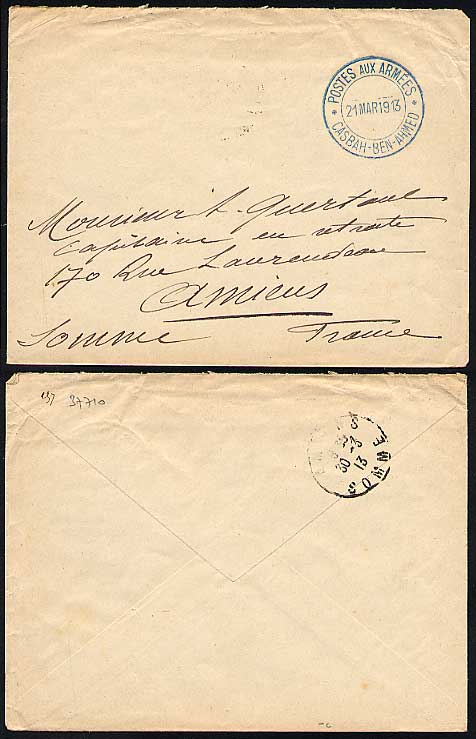 * POSTES AUX ARMÉES *
21 MAR 1913
CASBAH-BEN-AHMED
Monsieur A. Quertant
Capitaine en retraite
170 Rue Laurendeau
Amiens
Somme France
37710
30-3
13
SOMME